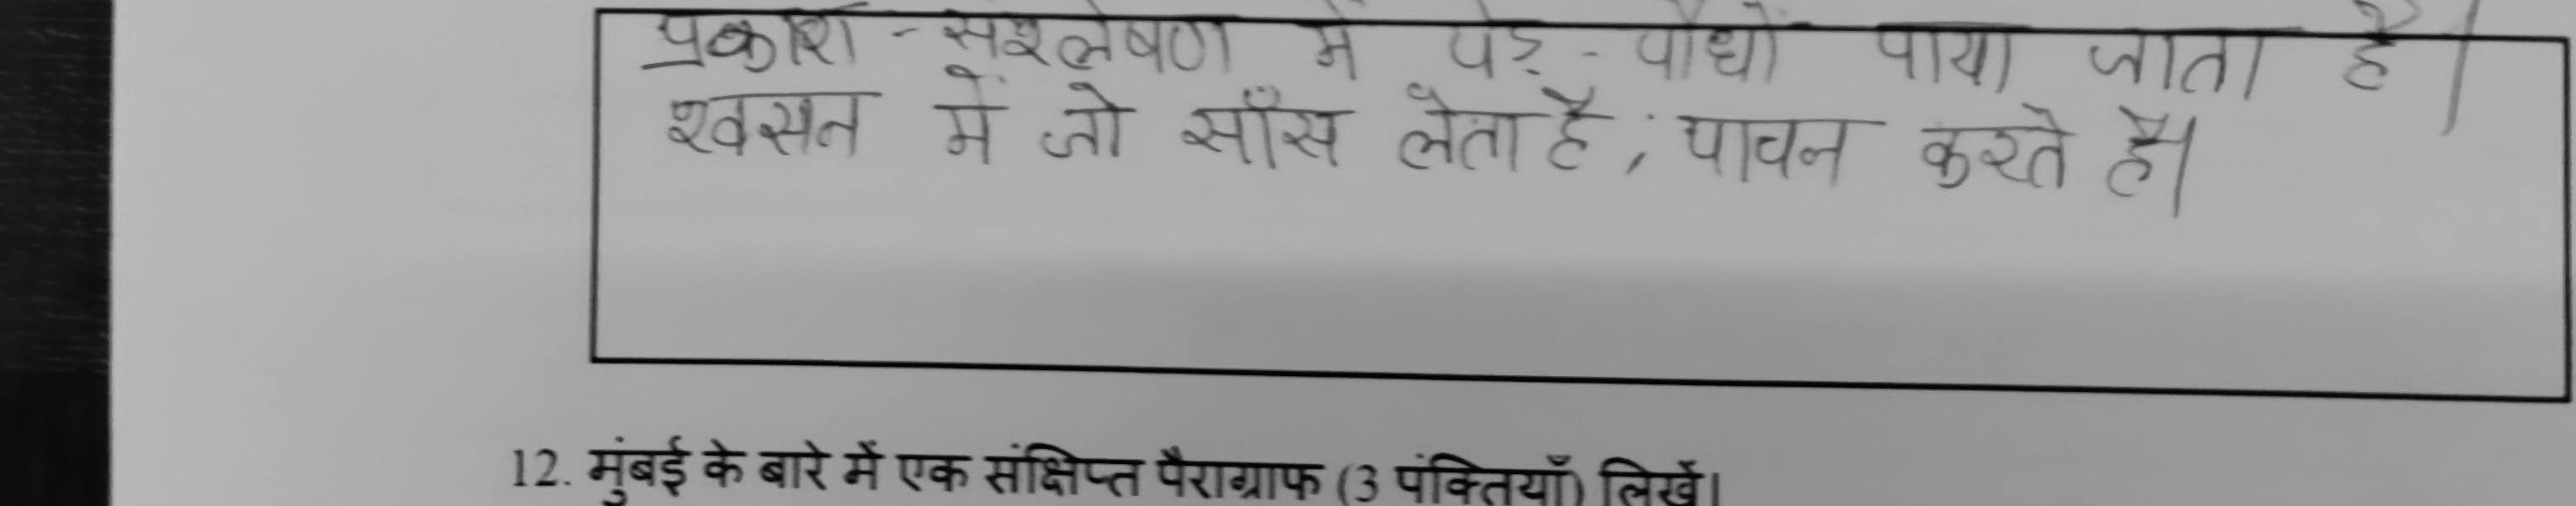 प्रकाश - संश्लेषण में पेड़ - पौधों पाया जाता है।
श्वसन में जो साँस लेता है, पाचन करते है।
12. मुंबई के बारे में एक संक्षिप्त पैराग्राफ (3 पंक्तियाँ) लिखें।